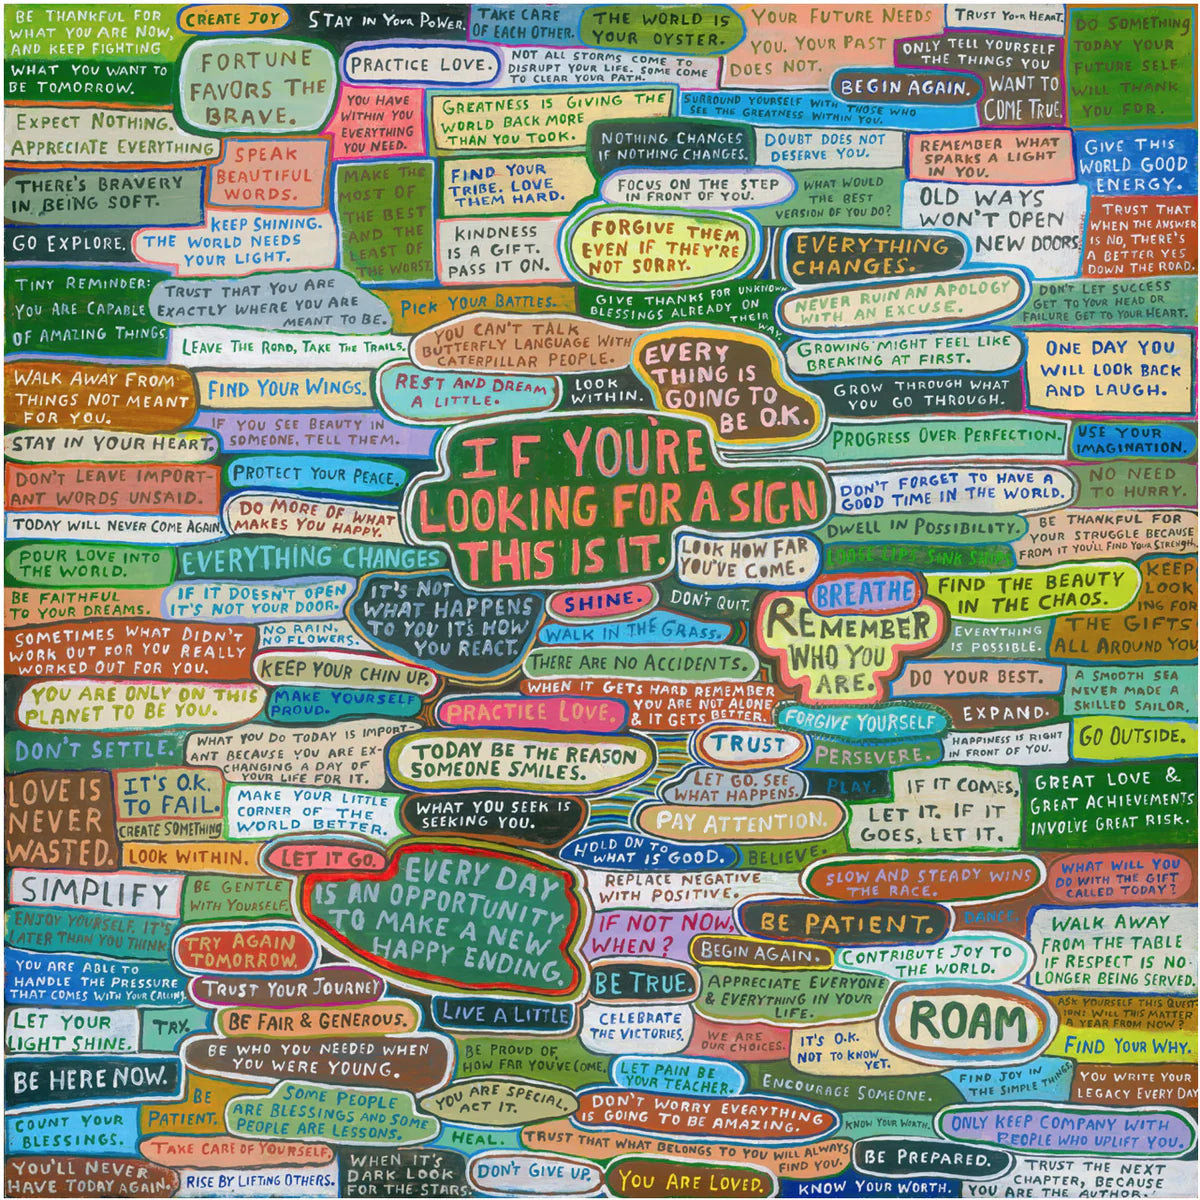 BE THANKFUL FOR
WHAT YOU ARE NOW,
AND KEEP FIGHTING
WHAT YOU WANT TO
BE TOMORROW.
CREATE JOY
STAY IN YOUR POWER.
TAKE CARE
OF EACH OTHER.
THE WORLD IS
YOUR OYSTER.
YOUR FUTURE NEEDS
YOU. YOUR PAST
DOES NOT.
TRUST YOUR HEART.
DO SOMETHING
TODAY YOUR
FUTURE SELF
WILL THANK
YOU FOR.
FORTUNE
FAVORS THE
BRAVE.
PRACTICE LOVE.
NOT ALL STORMS COME TO
DISRUPT YOUR LIFE. SOME COME
TO CLEAR YOUR PATH.
ONLY TELL YOURSELF
THE THINGS YOU
WANT TO
COME TRUE.
BEGIN AGAIN.
EXPECT NOTHING.
APPRECIATE EVERYTHING
YOU HAVE
WITHIN YOU
EVERYTHING
YOU NEED.
GREATNESS IS GIVING THE
WORLD BACK MORE
THAN YOU TOOK.
SURROUND YOURSELF WITH THOSE WHO
SEE THE GREATNESS WITHIN YOU.
SPEAK
BEAUTIFUL
WORDS.
NOTHING CHANGES
IF NOTHING CHANGES.
DOUBT DOES NOT
DESERVE YOU.
REMEMBER WHAT
SPARKS A LIGHT
IN YOU.
GIVE THIS
WORLD GOOD
ENERGY.
THERE'S BRAVERY
IN BEING SOFT.
MAKE THE
MOST OF
THE BEST
AND THE
LEAST OF
THE WORST
FIND YOUR
TRIBE. LOVE
THEM HARD.
FOCUS ON THE STEP
IN FRONT OF YOU.
WHAT WOULD
THE BEST
VERSION OF YOU DO?
OLD WAYS
WON'T OPEN
NEW DOORS.
TRUST THAT
WHEN THE ANSWER
IS NO, THERE'S
A BETTER YES
DOWN THE ROAD.
GO EXPLORE.
KEEP SHINING.
THE WORLD NEEDS
YOUR LIGHT.
KINDNESS
IS A GIFT.
PASS IT ON.
FORGIVE THEM
EVEN IF THEY'RE
NOT SORRY.
EVERYTHING
CHANGES.
TINY REMINDER:
YOU ARE CAPABLE
OF AMAZING THINGS.
TRUST THAT YOU ARE
EXACTLY WHERE YOU ARE
MEANT TO BE.
PICK YOUR BATTLES.
GIVE THANKS FOR UNKNOWN
BLESSINGS ALREADY ON
THEIR
WAY.
NEVER RUIN AN APOLOGY
WITH AN EXCUSE.
DON'T LET SUCCESS
GET TO YOUR HEAD OR
FAILURE GET TO YOUR HEART.
LEAVE THE ROAD, TAKE THE TRAILS.
YOU CAN'T TALK
BUTTERFLY LANGUAGE WITH
CATERPILLAR PEOPLE.
EVERY
THING IS
GOING TO
BE O.K.
GROWING MIGHT FEEL LIKE
BREAKING AT FIRST.
ONE DAY YOU
WILL LOOK BACK
AND LAUGH.
WALK AWAY FROM
THINGS NOT MEANT
FOR YOU.
FIND YOUR WINGS.
REST AND DREAM
A LITTLE.
LOOK
WITHIN.
GROW THROUGH WHAT
YOU GO THROUGH.
STAY IN YOUR HEART.
IF YOU SEE BEAUTY IN
SOMEONE, TELL THEM.
IF YOU'RE
LOOKING FOR A SIGN
THIS IS IT.
PROGRESS OVER PERFECTION.
USE YOUR
IMAGINATION.
DON'T LEAVE IMPORT-
ANT WORDS UNSAID.
PROTECT YOUR PEACE.
DON'T FORGET TO HAVE A
GOOD TIME IN THE WORLD.
NO NEED
TO HURRY.
TODAY WILL NEVER COME AGAIN.
DO MORE OF WHAT
MAKES YOU HAPPY.
DWELL IN POSSIBILITY.
BE THANKFUL FOR
YOUR STRUGGLE BECAUSE
FROM IT YOU'LL FIND YOUR STRENGTH.
POUR LOVE INTO
THE WORLD.
EVERYTHING CHANGES
LOOK HOW FAR
YOU'VE COME.
LOOSE LIPS SINK SHIPS
BE FAITHFUL
TO YOUR DREAMS.
IF IT DOESN'T OPEN
IT'S NOT YOUR DOOR.
IT'S NOT
WHAT HAPPENS
TO YOU IT'S HOW
YOU REACT.
SHINE.
DON'T QUIT.
BREATHE
FIND THE BEAUTY
IN THE CHAOS.
KEEP
LOOK
ING FOR
THE GIFTS
ALL AROUND YOU
SOMETIMES WHAT DIDN'T
WORK OUT FOR YOU REALLY
WORKED OUT FOR YOU.
NO RAIN.
NO FLOWERS.
WALK IN THE GRASS.
REMEMBER
WHO YOU
ARE.
EVERYTHING
IS POSSIBLE.
KEEP YOUR CHIN UP.
THERE ARE NO ACCIDENTS.
DO YOUR BEST.
A SMOOTH SEA
NEVER MADE A
SKILLED SAILOR.
YOU ARE ONLY ON THIS
PLANET TO BE YOU.
MAKE YOURSELF
PROUD.
PRACTICE LOVE.
WHEN IT GETS HARD REMEMBER
YOU ARE NOT ALONE
& IT GETS BETTER.
FORGIVE YOURSELF
EXPAND.
DON'T SETTLE.
WHAT YOU DO TODAY IS IMPORT-
ANT BECAUSE YOU ARE EX-
CHANGING A DAY OF
YOUR LIFE FOR IT.
TODAY BE THE REASON
SOMEONE SMILES.
TRUST
PERSEVERE.
HAPPINESS IS RIGHT
IN FRONT OF YOU.
GO OUTSIDE.
LOVE IS
NEVER
WASTED.
IT'S O.K.
TO FAIL.
CREATE SOMETHING
MAKE YOUR LITTLE
CORNER OF THE
WORLD BETTER.
WHAT YOU SEEK IS
SEEKING YOU.
LET GO. SEE
WHAT HAPPENS.
PLAY.
IF IT COMES,
LET IT. IF IT
GOES, LET IT.
GREAT LOVE &
GREAT ACHIEVEMENTS
INVOLVE GREAT RISK.
PAY ATTENTION.
LOOK WITHIN.
LET IT GO.
HOLD ON TO
WHAT IS GOOD.
BELIEVE.
SIMPLIFY
BE GENTLE
WITH YOURSELF.
EVERY DAY
IS AN OPPORTUNITY
TO MAKE A NEW
HAPPY ENDING.
REPLACE NEGATIVE
WITH POSITIVE.
SLOW AND STEADY WINS
THE RACE.
WHAT WILL YOU
DO WITH THE GIFT
CALLED TODAY?
ENJOY YOURSELF. IT'S
LATER THAN YOU THINK.
TRY AGAIN
TOMORROW.
IF NOT NOW,
WHEN?
BE PATIENT.
DANCE.
WALK AWAY
FROM THE TABLE
IF RESPECT IS NO
LONGER BEING SERVED.
BEGIN AGAIN.
CONTRIBUTE JOY TO
THE WORLD.
YOU ARE ABLE TO
HANDLE THE PRESSURE
THAT COMES WITH YOUR CALLING.
TRUST YOUR JOURNEY
BE TRUE.
APPRECIATE EVERYONE
& EVERYTHING IN YOUR
LIFE.
ROAM
ASK YOURSELF THIS QUEST-
ION: WILL THIS MATTER
A YEAR FROM NOW?
LET YOUR
LIGHT SHINE.
TRY.
BE FAIR & GENEROUS.
LIVE A LITTLE
CELEBRATE
THE VICTORIES.
WE ARE
OUR CHOICES.
IT'S O.K.
NOT TO KNOW
YET.
FIND YOUR WHY.
BE HERE NOW.
BE WHO YOU NEEDED WHEN
YOU WERE YOUNG.
BE PROUD OF
HOW FAR YOU'VE COME.
LET PAIN BE
YOUR TEACHER.
ENCOURAGE SOMEONE.
FIND JOY IN
THE SIMPLE THINGS.
YOU WRITE YOUR
LEGACY EVERY DAY
BE
PATIENT.
SOME PEOPLE
ARE BLESSINGS AND SOME
PEOPLE ARE LESSONS.
YOU ARE SPECIAL.
ACT IT.
DON'T WORRY EVERYTHING
IS GOING TO BE AMAZING.
KNOW YOUR WORTH.
ONLY KEEP COMPANY WITH
PEOPLE WHO UPLIFT YOU.
COUNT YOUR
BLESSINGS.
TAKE CARE OF YOURSELF.
HEAL.
TRUST THAT WHAT BELONGS TO YOU WILL ALWAYS
FIND YOU.
BE PREPARED.
YOU'LL NEVER
HAVE TODAY AGAIN.
RISE BY LIFTING OTHERS.
WHEN IT'S
DARK LOOK
FOR THE STARS.
DON'T GIVE UP.
YOU ARE LOVED.
KNOW YOUR WORTH.
TRUST THE NEXT
CHAPTER, BECAUSE
YOU ARE THE AUTHOR.